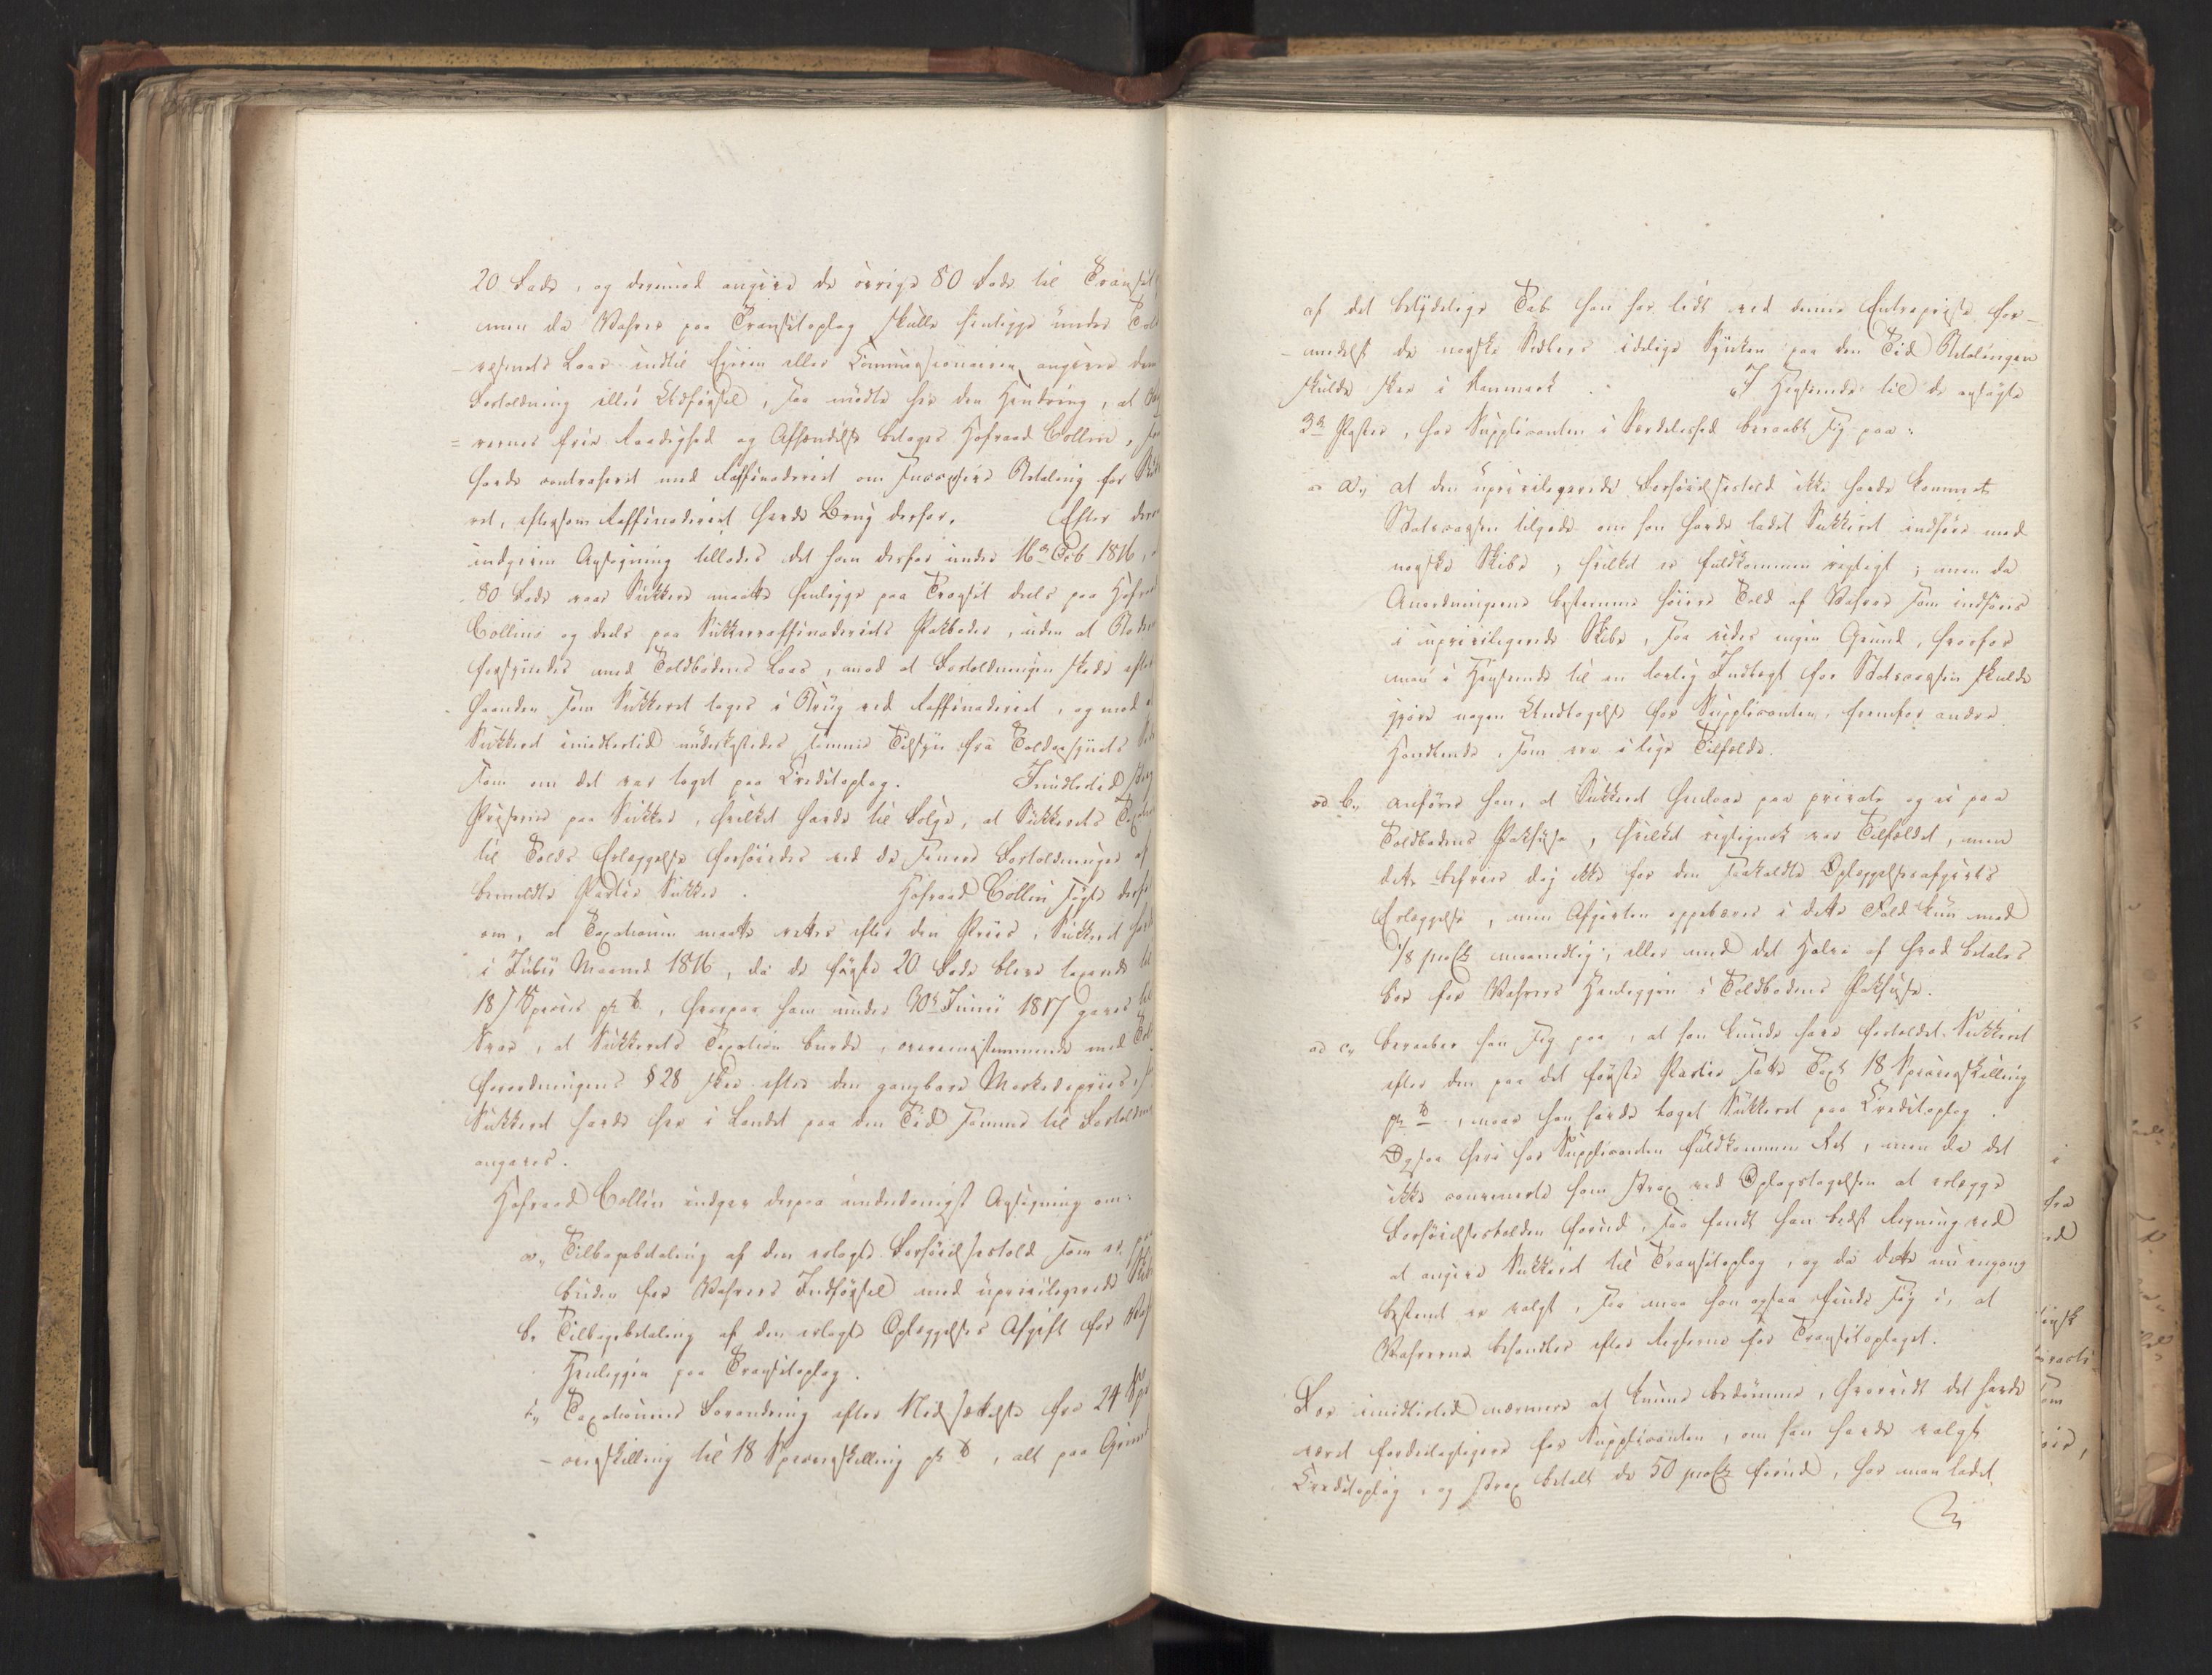 20 Fade, og derimod angive de øvrige 80 Fade til Transit
men da Vahrer paa Transitoplag skulle henligge under Told
-væsenets Laas indtil Ejeren eller Commissionairen angiver dem
Fortoldning eller Udførsel, saa mødte her den Hindring, at
=rernes frie Raadighed og Afhændelse betoges Hofraad Collin,
havde contraheret med Raffinaderiet om successive Betaling for
ret, eftersom Raffinaderiet havde Brug derfor. Efter
indgiven Ansøgning tillodes det ham derfor under 16de 1816,
80 Fade raae Sukkere maatte henligge paa Transit deels paa
Collins og deels paa Sukkerraffinaderiets Pakboder, uden at
forsynedes med Toldbodens Laas, mod at Fortoldningen skede efter
haanden som Sukkeret toges i Brug ved Raffinaderiet, og mod
Sukkeret imidlertid underkastedes samme Tilsyn fra Toldvæsenets
som om det var taget paa Creditoplag. Imidlertid
Priserne paa Sukker, hvilket havde til Følge, at Sukkerets
til Tolds Erlæggelse forhøiedes ved de senere Fortoldninger af
bemeldte Partie Sukker. Hofraad Collin søgte
om, at Taxationen maatte rettes efter den Priis, Sukkeret
i Julii Maaned 1816, da de første 20 Fade bleve taxerede
18 s Species pr ℔, hvorpaa ham under 30te Junii 1817 gaves
Svar, at Sukkerets Taxation burde, overeensstemmende med
forordningens § 28 skee efter den gangbare Markedspriis,
Sukkeret havde her i Landet paa den Tid samme til
angaves.
Hofraad Collin indgav derpaa underdanigst Ansøgning om:
a, Tilbagebetaling af den erlagte Forhøielsestold som er
buden for Vahrers Indførsel med uprivilegerede
b, Tilbagebetaling af den erlagte Oplæggelses Afgift for
Henliggen paa Transitoplag.
c, Taxationens Forandring efter Nedsættelse fra 24
-cieskilling til 18 Speciesskilling pr ℔, alt paa Grund
af det betydelige Tab han har lidt ved denne Entreprise for-
-medelst de norske Sedlers idelige Synken paa den Tid Betalingen
skulde skee i Danmark. I Henseende til de ansøgte
3de Poster, har Supplicanten i Særdeleshed beraabt sig paa:
ad a, at den uprivilegerede Forhøielsestold ikke havde kommet
Statscassen tilgode om han havde ladet Sukkeret indføre med
norske Skibe, hvilket er fuldkommen rigtigt; men da
Anordningerne bestemme høiere Told af Vahrer som indføres
i uprivilegerede Skibe, saa vides ingen Grund, hvorfor
man i Henseende til en lovlig Indtægt for Statscassen skulde
gjøre nogen Undtagelse for Supplicanten, fremfor andre
Handlende, som ere i lige Tilfælde.
ad b, anfører han, at Sukkeret henlaae paa private og ei paa
Toldbodens Pakhuse, hvilket rigtignok var Tilfældet, men
dette befrier dog ikke for den saakaldte Oplæggelsesafgivts
Erlæggelse, men Afgivten oppebæres i dette Fald kun med
1/8 proCt maanedlig, eller med det Halve af hvad betales
bør for Vahrers Henliggen i Toldbodens Pakhuse.
ad c, beraaber han sig paa, at han kunde have fortoldet Sukkeret
efter den paa det første Partie satte Taxt 18 Speciesskilling
pr ℔, naar han havde taget Sukkeret paa Creditoplag.
Ogsaa heri har Supplicanten fuldkommen Ret, men da det
ikke convenerte ham strax ved Oplagstagelsen at erlægge
Forhøielsestolden forud, saa fandt han bedst Regning ved
at angive Sukkeret til Transitoplag, og da dette nu engang
bestemt er valgt, saa maa han ogsaa finde sig i, at
Vahrerne behandles efter Reglerne for Transitoplaget.
For imidlertid nærmere at kunne bedømme, hvorvidt det havde
været fordeelagtigere for Supplicanten, om han havde valgt
Creditoplag, og strax betalt de 50 proCt forud, har man ladet